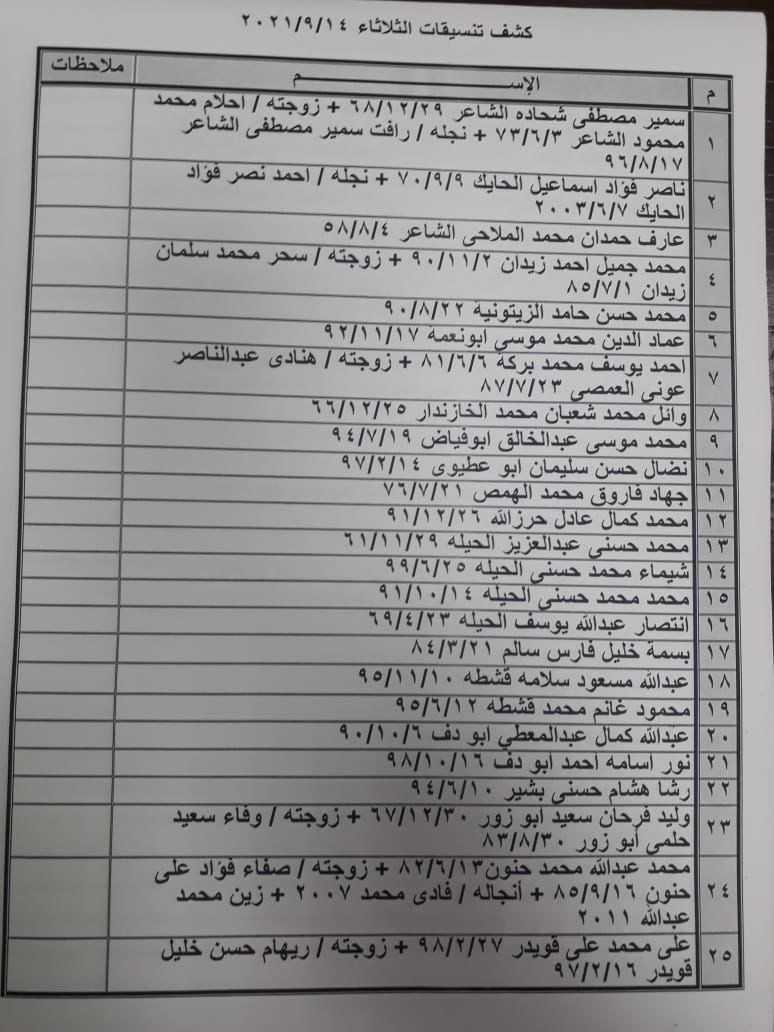 كشف تنسيقات الثلاثاء ٢٠٢١/٩/١٤
م الإســـــم ملاحظات
١ سمير مصطفى شحاده الشاعر ٦٨/١٢/٢٩ + زوجته / احلام محمد
محمود الشاعر ٧٣/٦/٣ + نجله / رافت سمير مصطفى الشاعر
٩٦/٨/١٧
٢ ناصر فؤاد اسماعيل الحايك ٧٠/٩/٩ + نجله / احمد نصر فؤاد
الحايك ٢٠٠٣/٦/٧
٣ عارف حمدان محمد الملاحى الشاعر ٥٨/٨/٤
٤ محمد جميل احمد زيدان ٩٠/١١/٢ + زوجته / سحر محمد سلمان
زيدان ٨٥/٧/١
٥ محمد حسن حامد الزيتونية ٩٠/٨/٢٢
٦ عماد الدين محمد موسى ابونعمة ٩٢/١١/١٧
٧ احمد يوسف محمد بركة ٨١/٦/٦ + زوجته / هنادى عبدالناصر
عونى العمصى ٨٧/٧/٢٣
٨ وائل محمد شعبان محمد الخازندار ٦٦/١٢/٢٥
٩ محمد موسى عبدالخالق ابوفياض ٩٤/٧/١٩
١٠ نضال حسن سليمان ابو عطيوى ٩٧/٢/١٤
١١ جهاد فاروق محمد الهمص ٧٦/٧/٢١
١٢ محمد كمال عادل حرزالله ٩١/١٢/٢٦
١٣ محمد حسنى عبدالعزيز الحيله ٦١/١١/٢٩
١٤ شيماء محمد حسنى الحيله ٩٩/٦/٢٥
١٥ محمد محمد حسنى الحيله ٩١/١٠/١٤
١٦ انتصار عبدالله يوسف الحيله ٦٩/٤/٢٣
١٧ بسمة خليل فارس سالم ٨٤/٣/٢١
١٨ عبدالله مسعود سلامه قشطه ٩٥/١١/١٠
١٩ محمود غانم محمد قشطه ٩٥/٦/١٢
٢٠ عبدالله كمال عبدالمعطي ابو دف ٩٠/١٠/٦
٢١ نور اسامه احمد ابو دف ٩٨/١٠/١٦
٢٢ رشا هشام حسنى بشير ٩٤/٦/١٠
٢٣ وليد فرحان سعيد ابو زور ٦٧/١٢/٣٠ + زوجته / وفاء سعيد
حلمى أبو زور ٨٣/٨/٣٠
٢٤ محمد عبدالله محمد حنون٨٢/٦/١٣ + زوجته / صفاء فؤاد على
حنون ٨٥/٩/١٦ + أنجاله / فادى محمد ٢٠٠٧ + زين محمد
عبدالله ٢٠١١
٢٥ على محمد على قويدر ٩٨/٢/٢٧ + زوجته / ريهام حسن خليل
قويدر ٩٧/٢/١٦